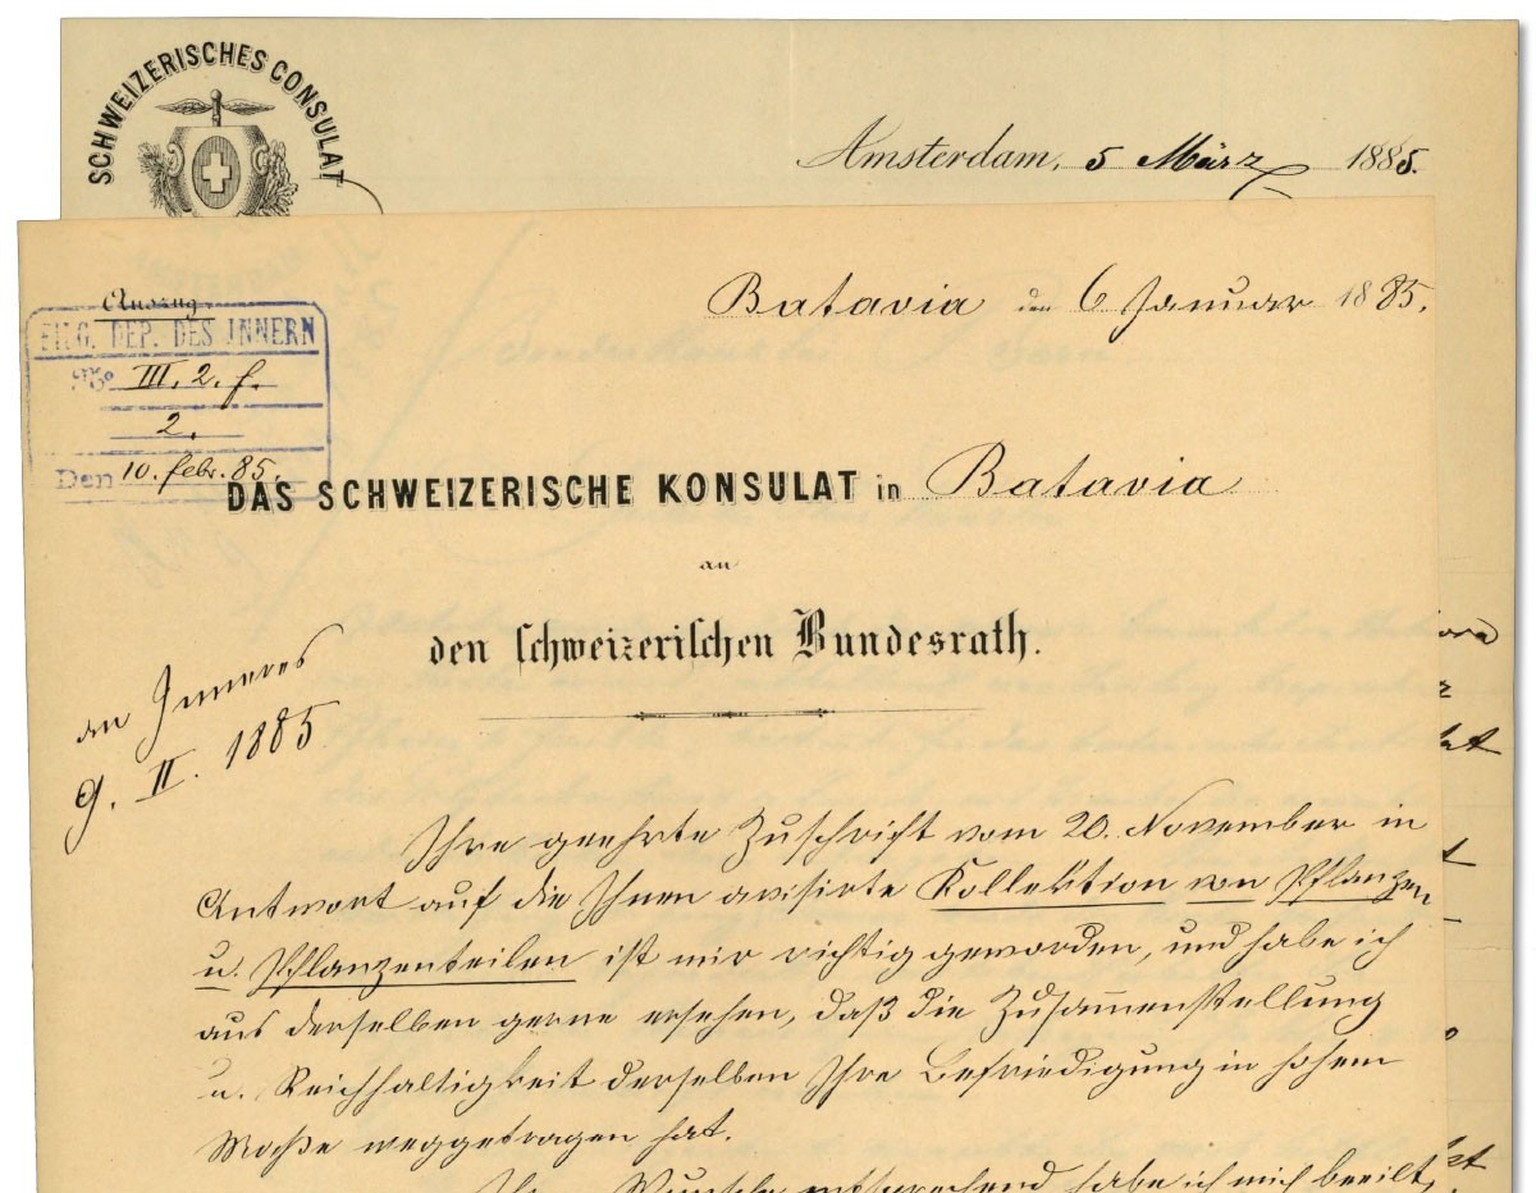 SCHWEIZERISCHES CONSULAT
Amsterdam, 5 März 1885.
Batavia den 6 Januar 1885.
Auszug
EIDG. DEP. DES INNERN
No III. 2. f.
2.
Den 10. Febr. 85.
DAS SCHWEIZERISCHE KONSULAT in Batavia
an
den schweizerischen Bundesrath.
an Inneres
9. II. 1885
Ihre geehrte Zuschrift vom 20. November in
Antwort auf die Ihnen avisirte Kollektion von Pflanzen
u. Pflanzenteilen ist mir richtig geworden, und habe ich
aus derselben gerne ersehen, daß die Zusam̅enstellung
u. Reichhaltigkeit derselben Ihre Befriedigung in hohem
Maße weggetragen hat.
Wunsche entsprechend habe ich mich beeilt,